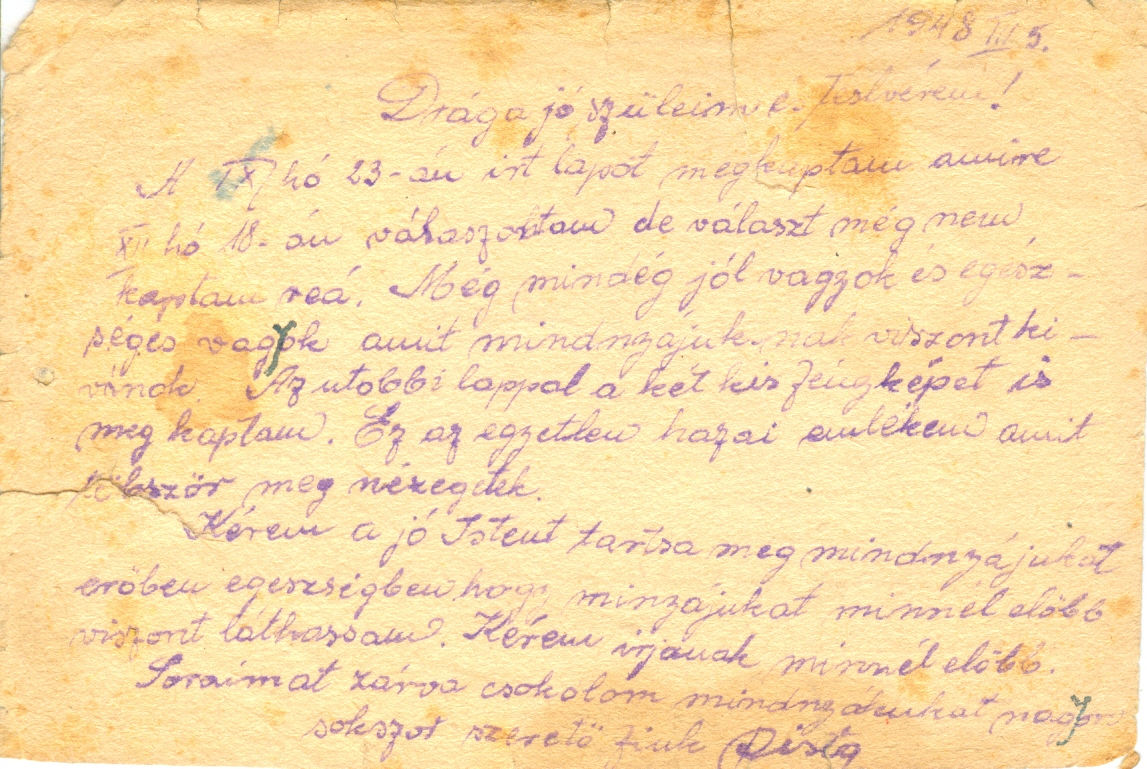 1948 III 5.
Drága jó szüleim e. Testvérem!
A IX hó 23-án irt lapot megkaptam amire
XII hó 18-án válaszoltam de választ még nem
kaptam reá. Még mindég jól vagyok és egész-
séges vagyok amit mindnzájuk nak viszont ki-
vánok. Az utobbi lappal a két kis fénzképet is
meg kaptam. Ez az egzetlen hazai emlékem amit
többször meg nézegetek.
Kérem a jó Istent tartsa meg mindnzájukat
erőben egeszségben hogz minzájukat minnél előbb
viszont láthassam. Kérem irjanak minnél előbb.
Soraimat zárva csokolom mindnzákukat nagyon
sokszor szerető fiuk